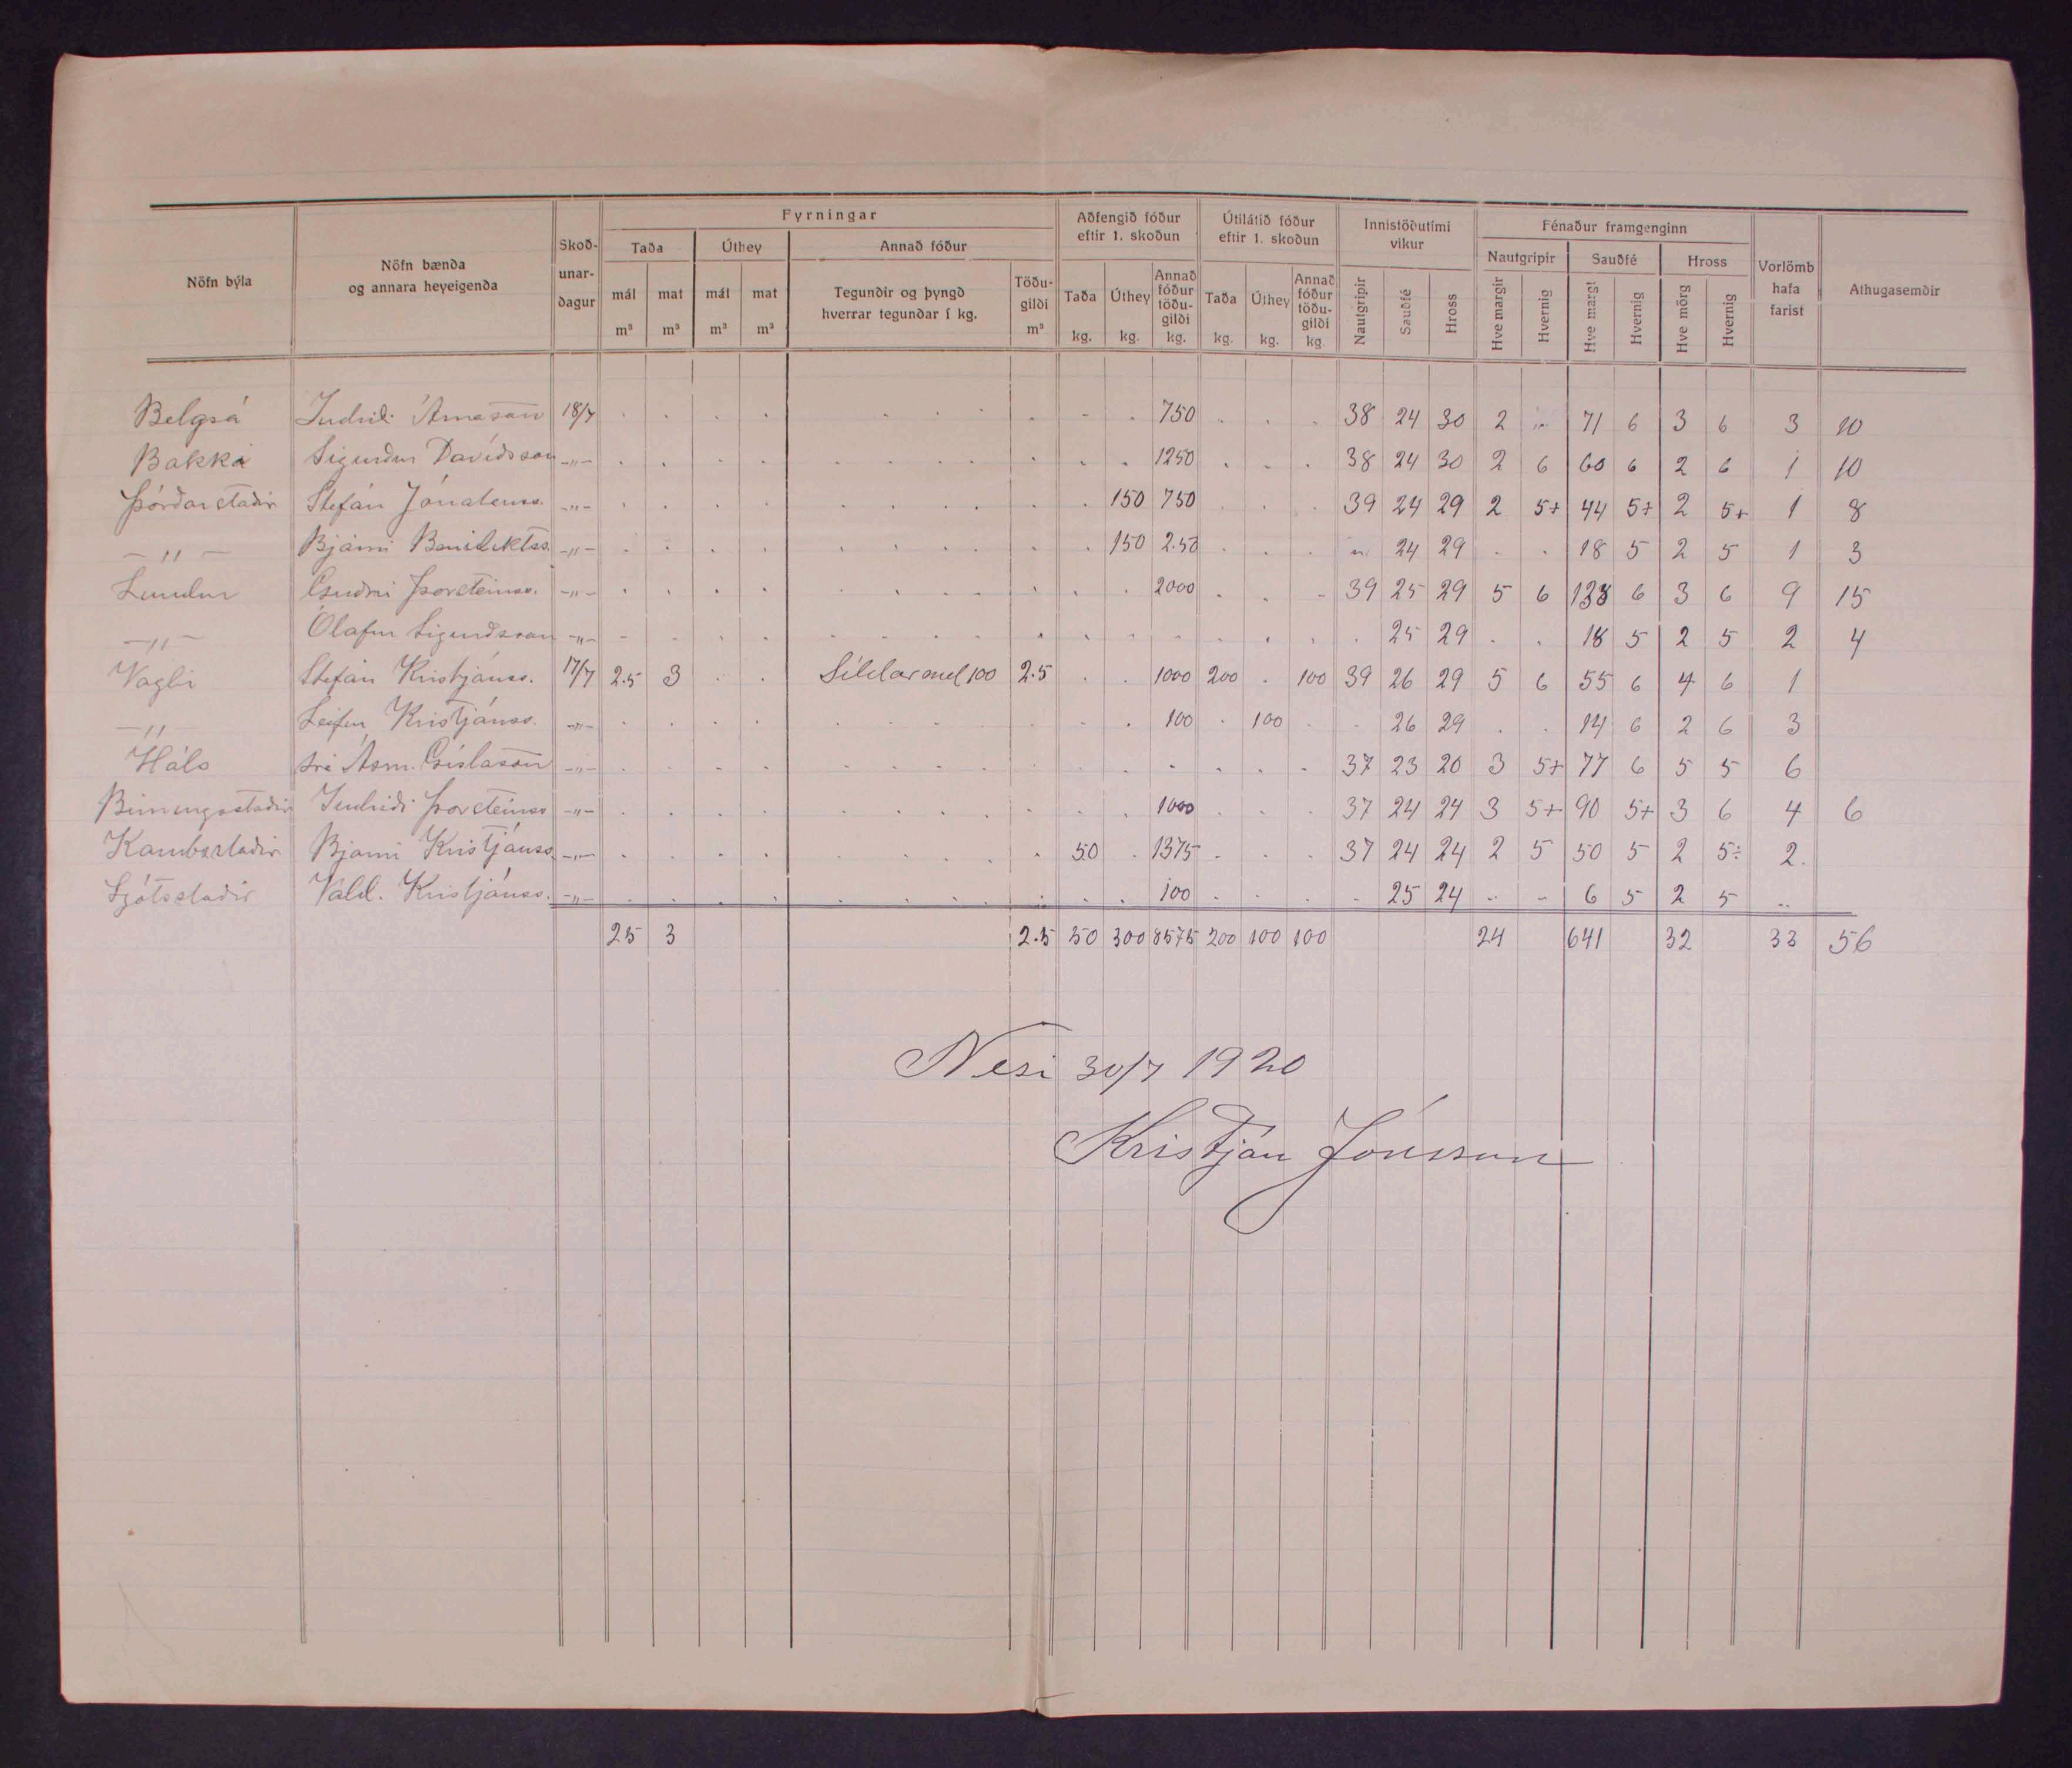 Nöfn býla | Nöfn bænda og annara heyeigenda | Skoð-unar-dagur | Fyrningar | Aðfengið fóður eftir 1. skoðun | Útilátið fóður eftir 1. skoðun | Innistöðutími vikur | Fénaður framgenginn | Vorlömb hafa farist | Athugasemdir
Taða | Úthey | Annað fóður | Nautgripir | Sauðfé | Hross
mál m³ | mat m³ | mál m³ | mat m³ | Tegundir og þyngd hverrar tegundar í kg. | Töðu-gildi m³ | Taða kg. | Úthey kg. | Annað fóður töðu-gildi kg. | Taða kg. | Úthey kg. | Annað fóður töðu-gildi kg | Nautgripir | Sauðfé | Hross | Hve margir | Hvernig | Hve margt | Hvernig | Hve mörg | Hvernig
Belgsá Indriði Árnason 18/7 . . . . . . . . . . 750 . . . 38 24 30 2 71 6 3 6 3 10
Bakka Sigurður Davíðsson -"- . . . . . . . . . . 1250 . . . 38 24 30 2 6 60 6 2 6 1 10
Þórðarstaðir Stefán Jónatanss. -"- . . . . . . . . . 150 750 . . . 39 24 29 2 5+ 44 5+ 2 5+ 1 8
-"- Bjarni Benediktss. -"- . . . . . . . . . 150 2.50 . . . " 24 29 . . 18 5 2 5 1 3
Lundur Guðni Þorsteinss. -"- . . . . . . . . . . 2000 . . - 39 25 29 5 6 138 6 3 6 9 15
-"- Ólafur Sigurðsson -"- - . . . . . . . . . . . . . . 25 29 . . 18 5 2 5 2 4
Vaglir Stefán Kristjánss. 17/7 2.5 3 . . Síldarmel 100 2.5 . . 1000 200 . 100 39 26 29 5 6 55 6 4 6 1
-"- Leifur Kristjánss. -"- . . . . . . . . . . 100 . 100 . . 26 29 . . 14 6 2 6 3
Háls sra Ásm. Gíslason -"- . . . . . . . . . . . . . . 37 23 20 3 5+ 77 6 5 5 6
Birningsstaðir Indriði Þorsteinss -"- . . . . . . . . . . 1000 . . . 37 24 24 3 5+ 90 5+ 3 6 4 6
Kambsstaðir Bjarni Kristjánss. -"- . . . . . . . . 50 . 1375 . . . 37 24 24 2 5 50 5 2 5÷ 2.
Ljótsstaðir Vald. Kristjánss. -"- . . . . . . . . . . 100 . . . - 25 24 .. - 6 5 2 5 ..
25 3 2.5 50 300 8575 200 100 100 24 641 32 33 56
Nesi 30/7 1920
Kristján Jónsson